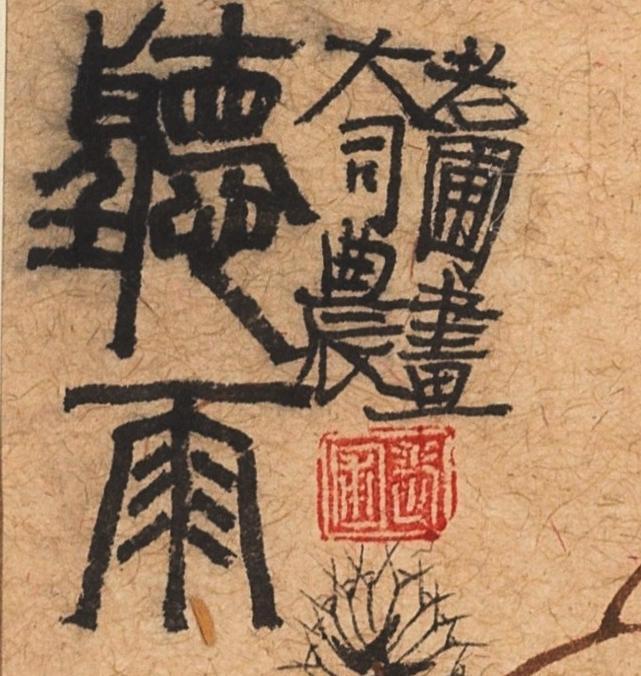 老圃畫
大司農
聽雨